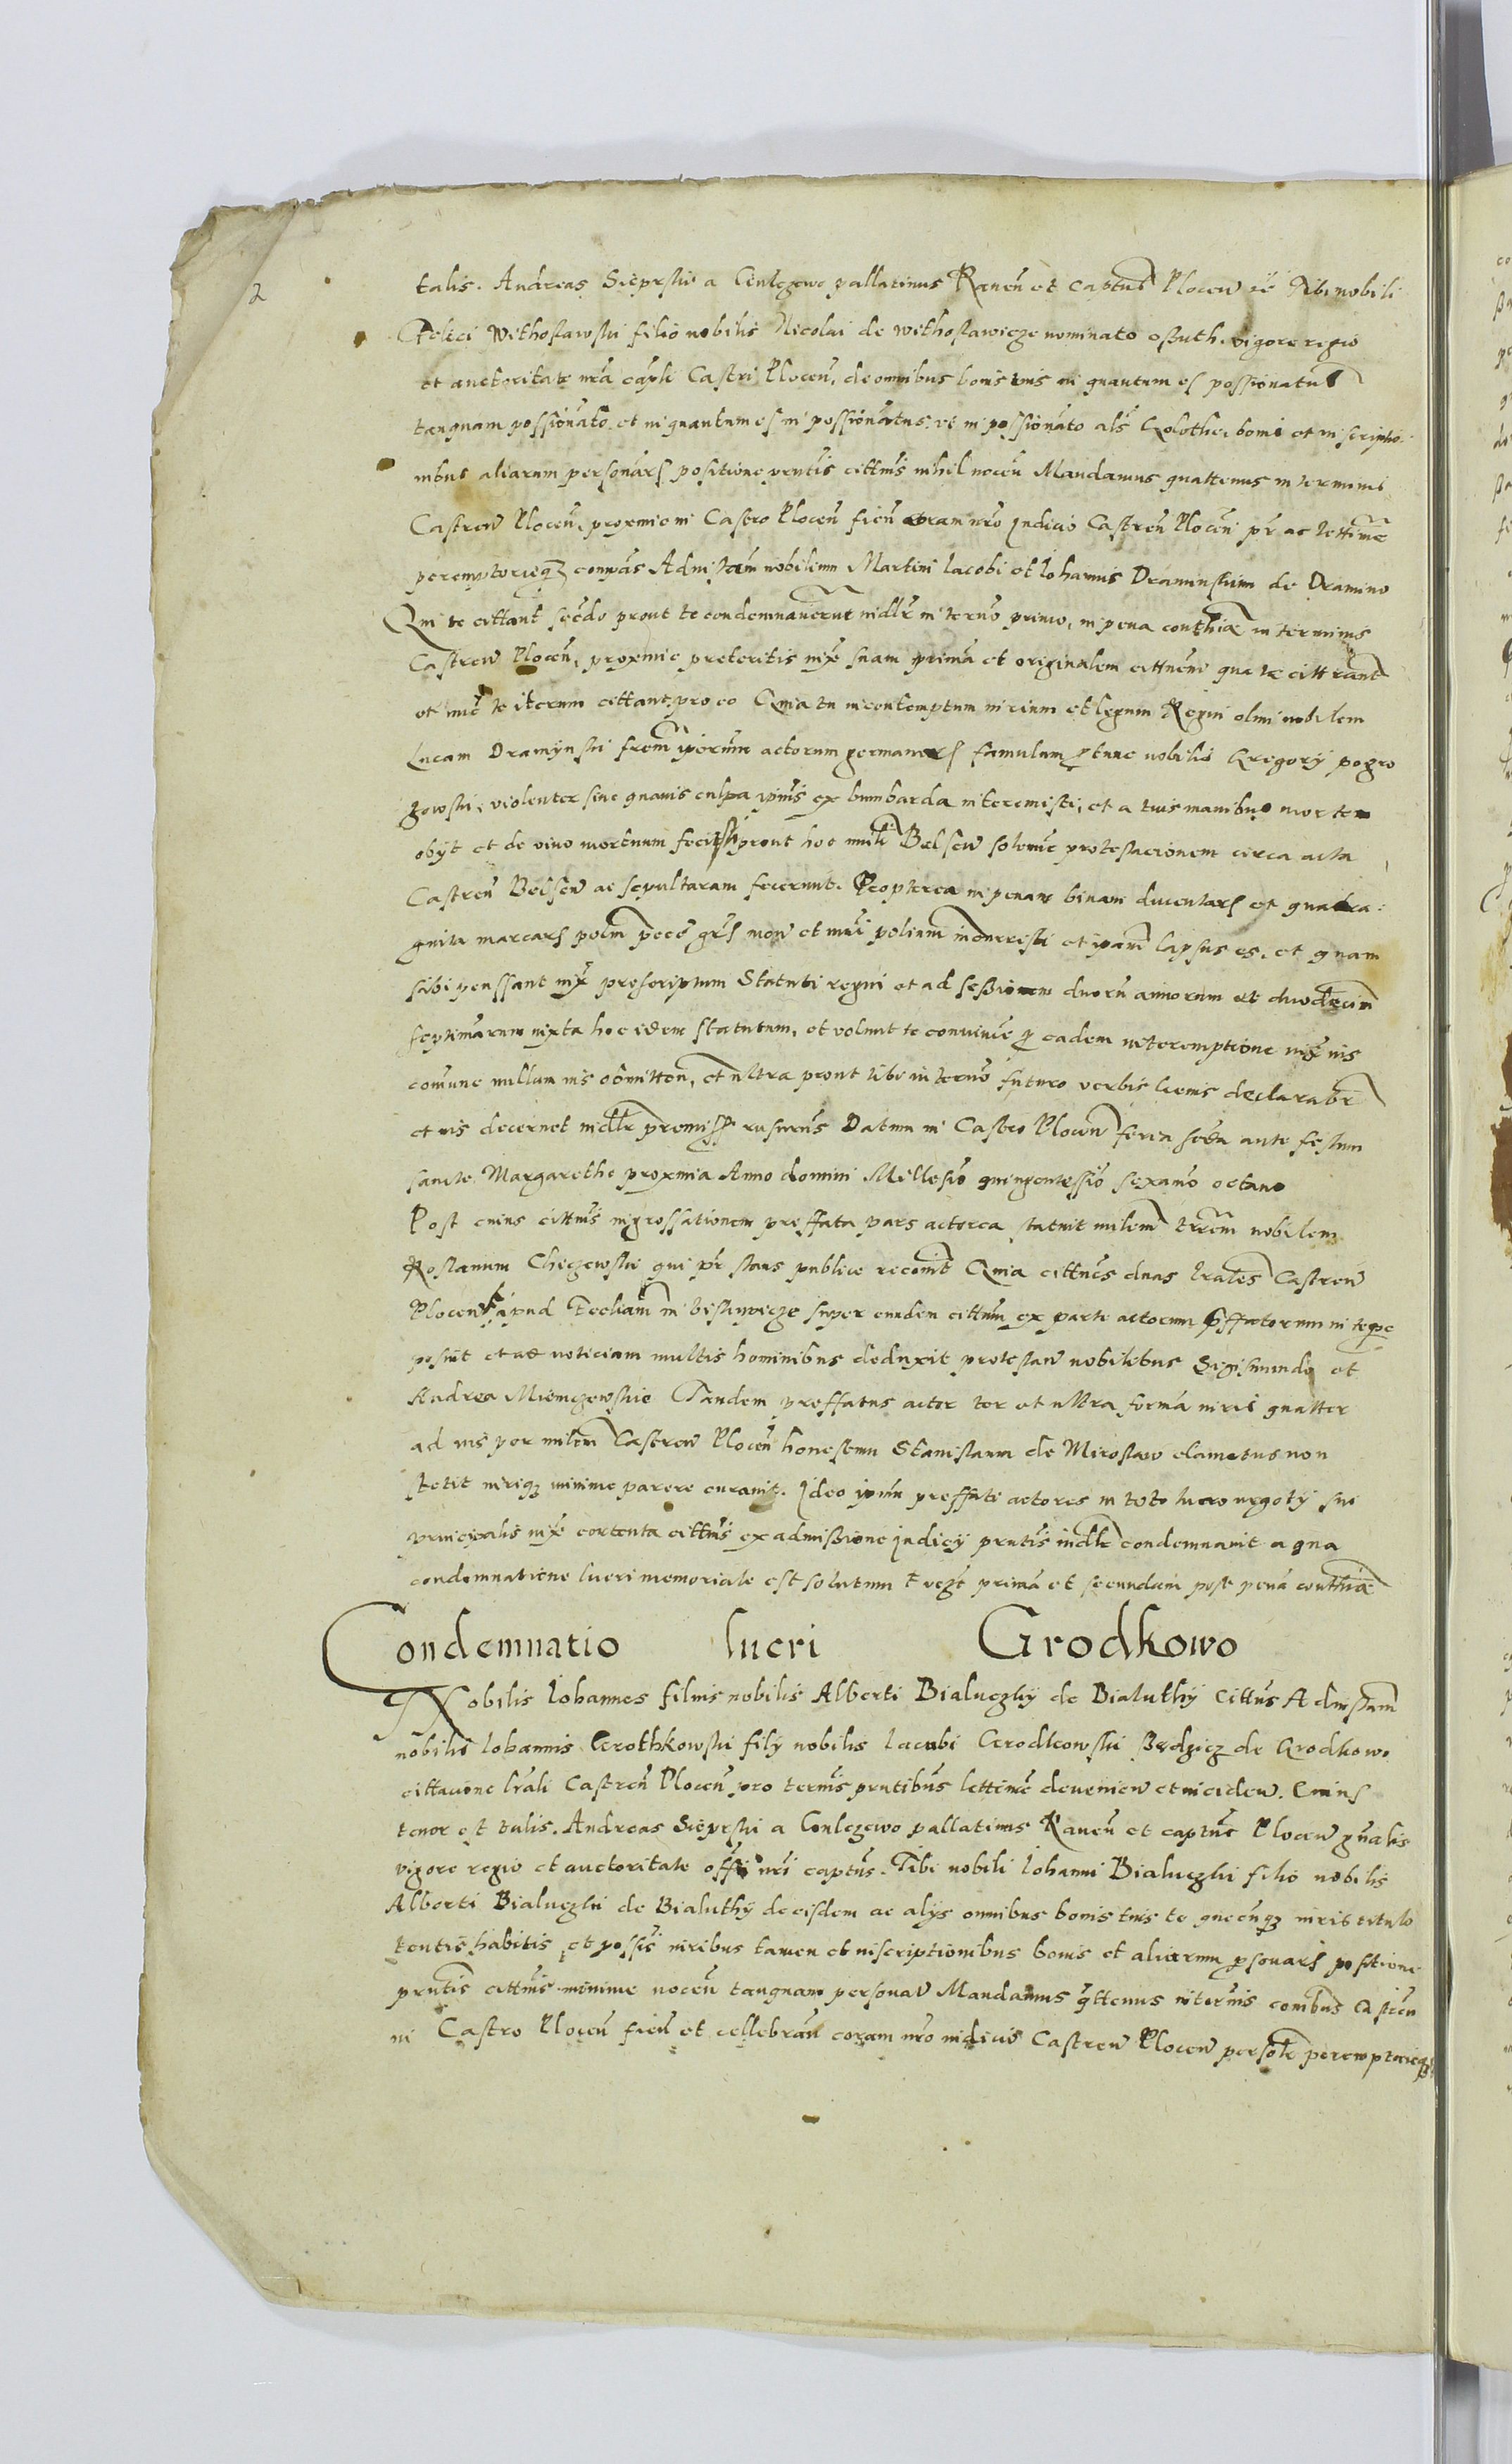 2
talis. Andreas Sieprski a Gulczewo pallatinus Raven et Captus Plocen Tibi nobili
Felici Withoslawski filio nobilis Nicolai de Withoslawicze nominato osuth. vigore regio
et auctoritate nra capli Castri Plocen, de omnibus bonis tuis in quantum es possionatus
tanquam possionato, et in quantum es in possionatus. in possionato als Golothe, bonis et inscriptio
nibus aliarum personars positione prntis cittnis nihil nocen Mandamus quattenus in terminis
Castren Plocen, proxime in Castro Plocen fien coram nro Judicio Castren Plocen pr ac lettime
peremptorieqz compas Ad instam nobilium Martini Iacobi et Iohannis Draminskim de Dramino
Qui te cittant secdo prout te condemnaverut indlr in terno primo, in pena conthia in terminis
Castren Plocen, proxime preteritis iux suam prima et originalem cittnem qua te cittrant
et nuc te iterum cittant, pro eo Quia tu in contemptum iurium et legum Regni olim nobilem
Lucam Draminski frem iporum actorum germanors famulum tunc nobilis Gregory pogro
zowski, violenter sine quavis culpa ipius ex bumbarda interemisti, et a tuis manibus mortem
obyt et de vivo mortuum fecisti prout hoc mili Belsen solemne protestacionem circa acta
Castren Belsen ac sepultaram fecerunt. Propterea in penam binam ducentars et quadra:
ginta marcars polm peco grs mon et nui polium incurristi et ipam lapsus es. et quam
sibi penssant iux prescriptum Statuti regni et ad sessionem duoru annorum et duodecim
septimarum iuxta hoc idem statutum, et volunt te convince p eadem interemptione iux ius
comune nullum ius omitten, et ultra prout tibi in terno futuro verbis liems declarabr
et ius decernet indlr premiss rusurus Datum in Castro Plocen feria scda ante festum
sancte Margarethe proxima Anno domini Millesio quingentessio sexamo octavo
Post cuius cittnis ingrossationem preffata pars actorea statuit milem trrem nobilem
Rostanum Chczewski qui pr stans publice recouit Quia cittnes duas lrales Castren
Plocen apud Eccliam in biskupicze super eundem cittum ex parte actorum pffatorum in tepe
posuit et ad noticiam multis hominibus deduxit protestan nobilibus Sigismundo et
Andrea Miemczewskie Tandem preffatus actor ter et ultra forma iuris quatter
ad ius per milem Castren Plocen honestum Stanislaum de Miroslaw clamatus non
stetit iuriqz minime parere curavit. Ideo ipum preffati actores in toto lucro negoty sui
principalis iux contenta cittnis ex admissione Judicy prntis indlr condemnavit a qua
condemnatione lucri memoriale est solutum prima et secundam post pena conthia
Condemnatio lucri Grodkowo
Nobilis Iohannes filius nobilis Alberti Bialuczky de Bialuthy Cittus Ad instam
nobilis Iohannis Grothkowski fily nobilis Iacobi Grodkowski Bedzicz de Grodkowo
cittacione lrali Castren Plocen pro ternis prntibus lettime devenien et inciden. Cuius
tenor est talis. Andreas Sieprski a Gulczewo pallatinus Raven et captus Plocen gnalis
vigore regio et auctoritate offi nri captus. Tibi nobili Iohanni Bialuczki filio nobilis
Alberti Bialuczki de Bialuthy de eisdem ac alys omnibus bonis tuis te quecuqz iuris titulo
tentis habitis et possis iuribus tamen et inscriptionibus bonis et aliarum psonars positione
prntis cittnis minime nocen tanquam personan Mandamus qttenus in ternis conibus Castren
in Castro Plocen fien et cellebran coram nro iudicio Castren Plocen persole peremptorieqz